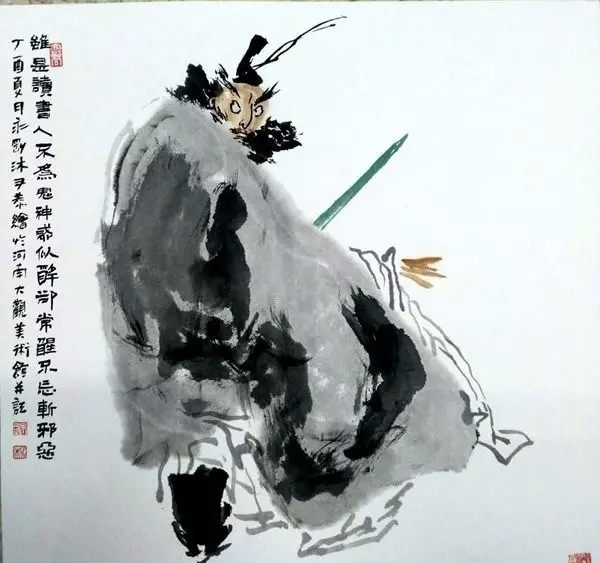 雖是讀書人不為鬼神似醉卻常醒不忘斬邪惡
丁酉夏月永沐手恭繪於河南大觀美術館并誌